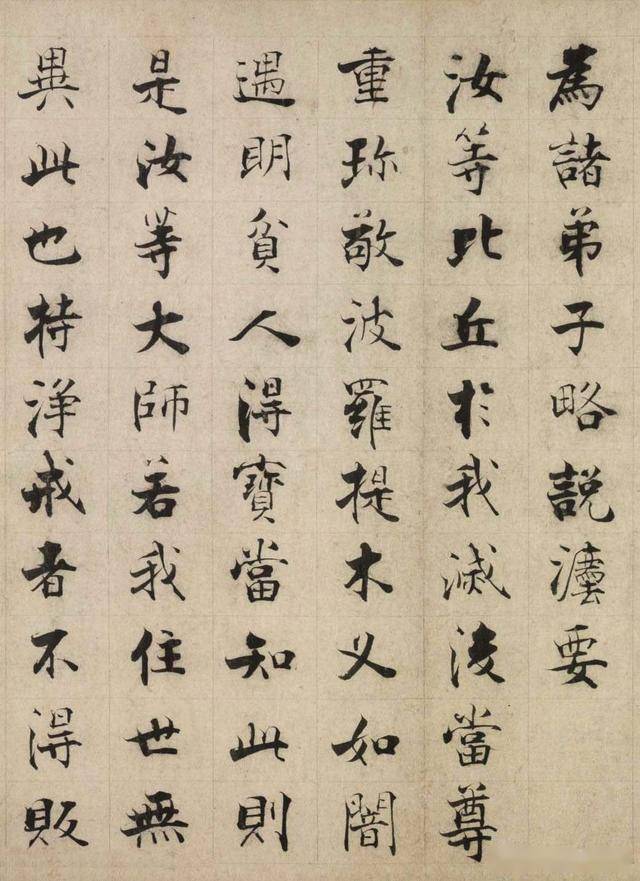 為諸弟子略説灋要
汝等比丘於我滅後當尊
重珎敬波羅提木义如闇
遇明貧人得寶當知此則
是汝等大師若我住世無
異此也持淨戒者不得販